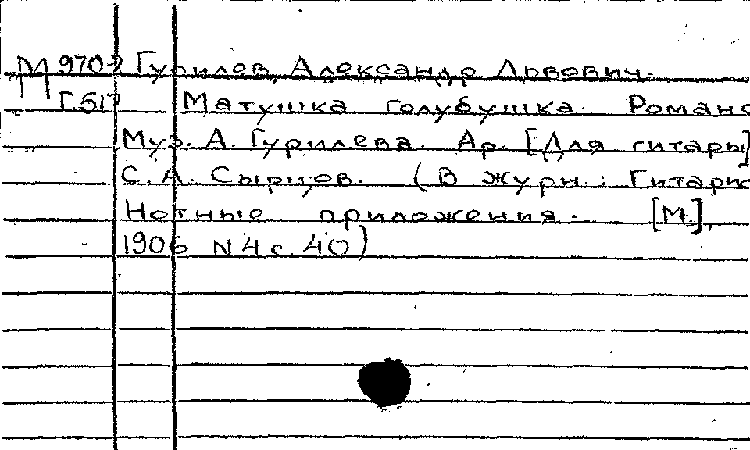 М 970² Гурилов, Александр Львович.
Г.517 Матушка голубушка. Романс
Муз. А. Гурилева. Ар. [Для гитары]
С. А. Сырцов. (В журн.: Гитарис
Нотные приложения. [М.],
1906 N 4 с. 40)